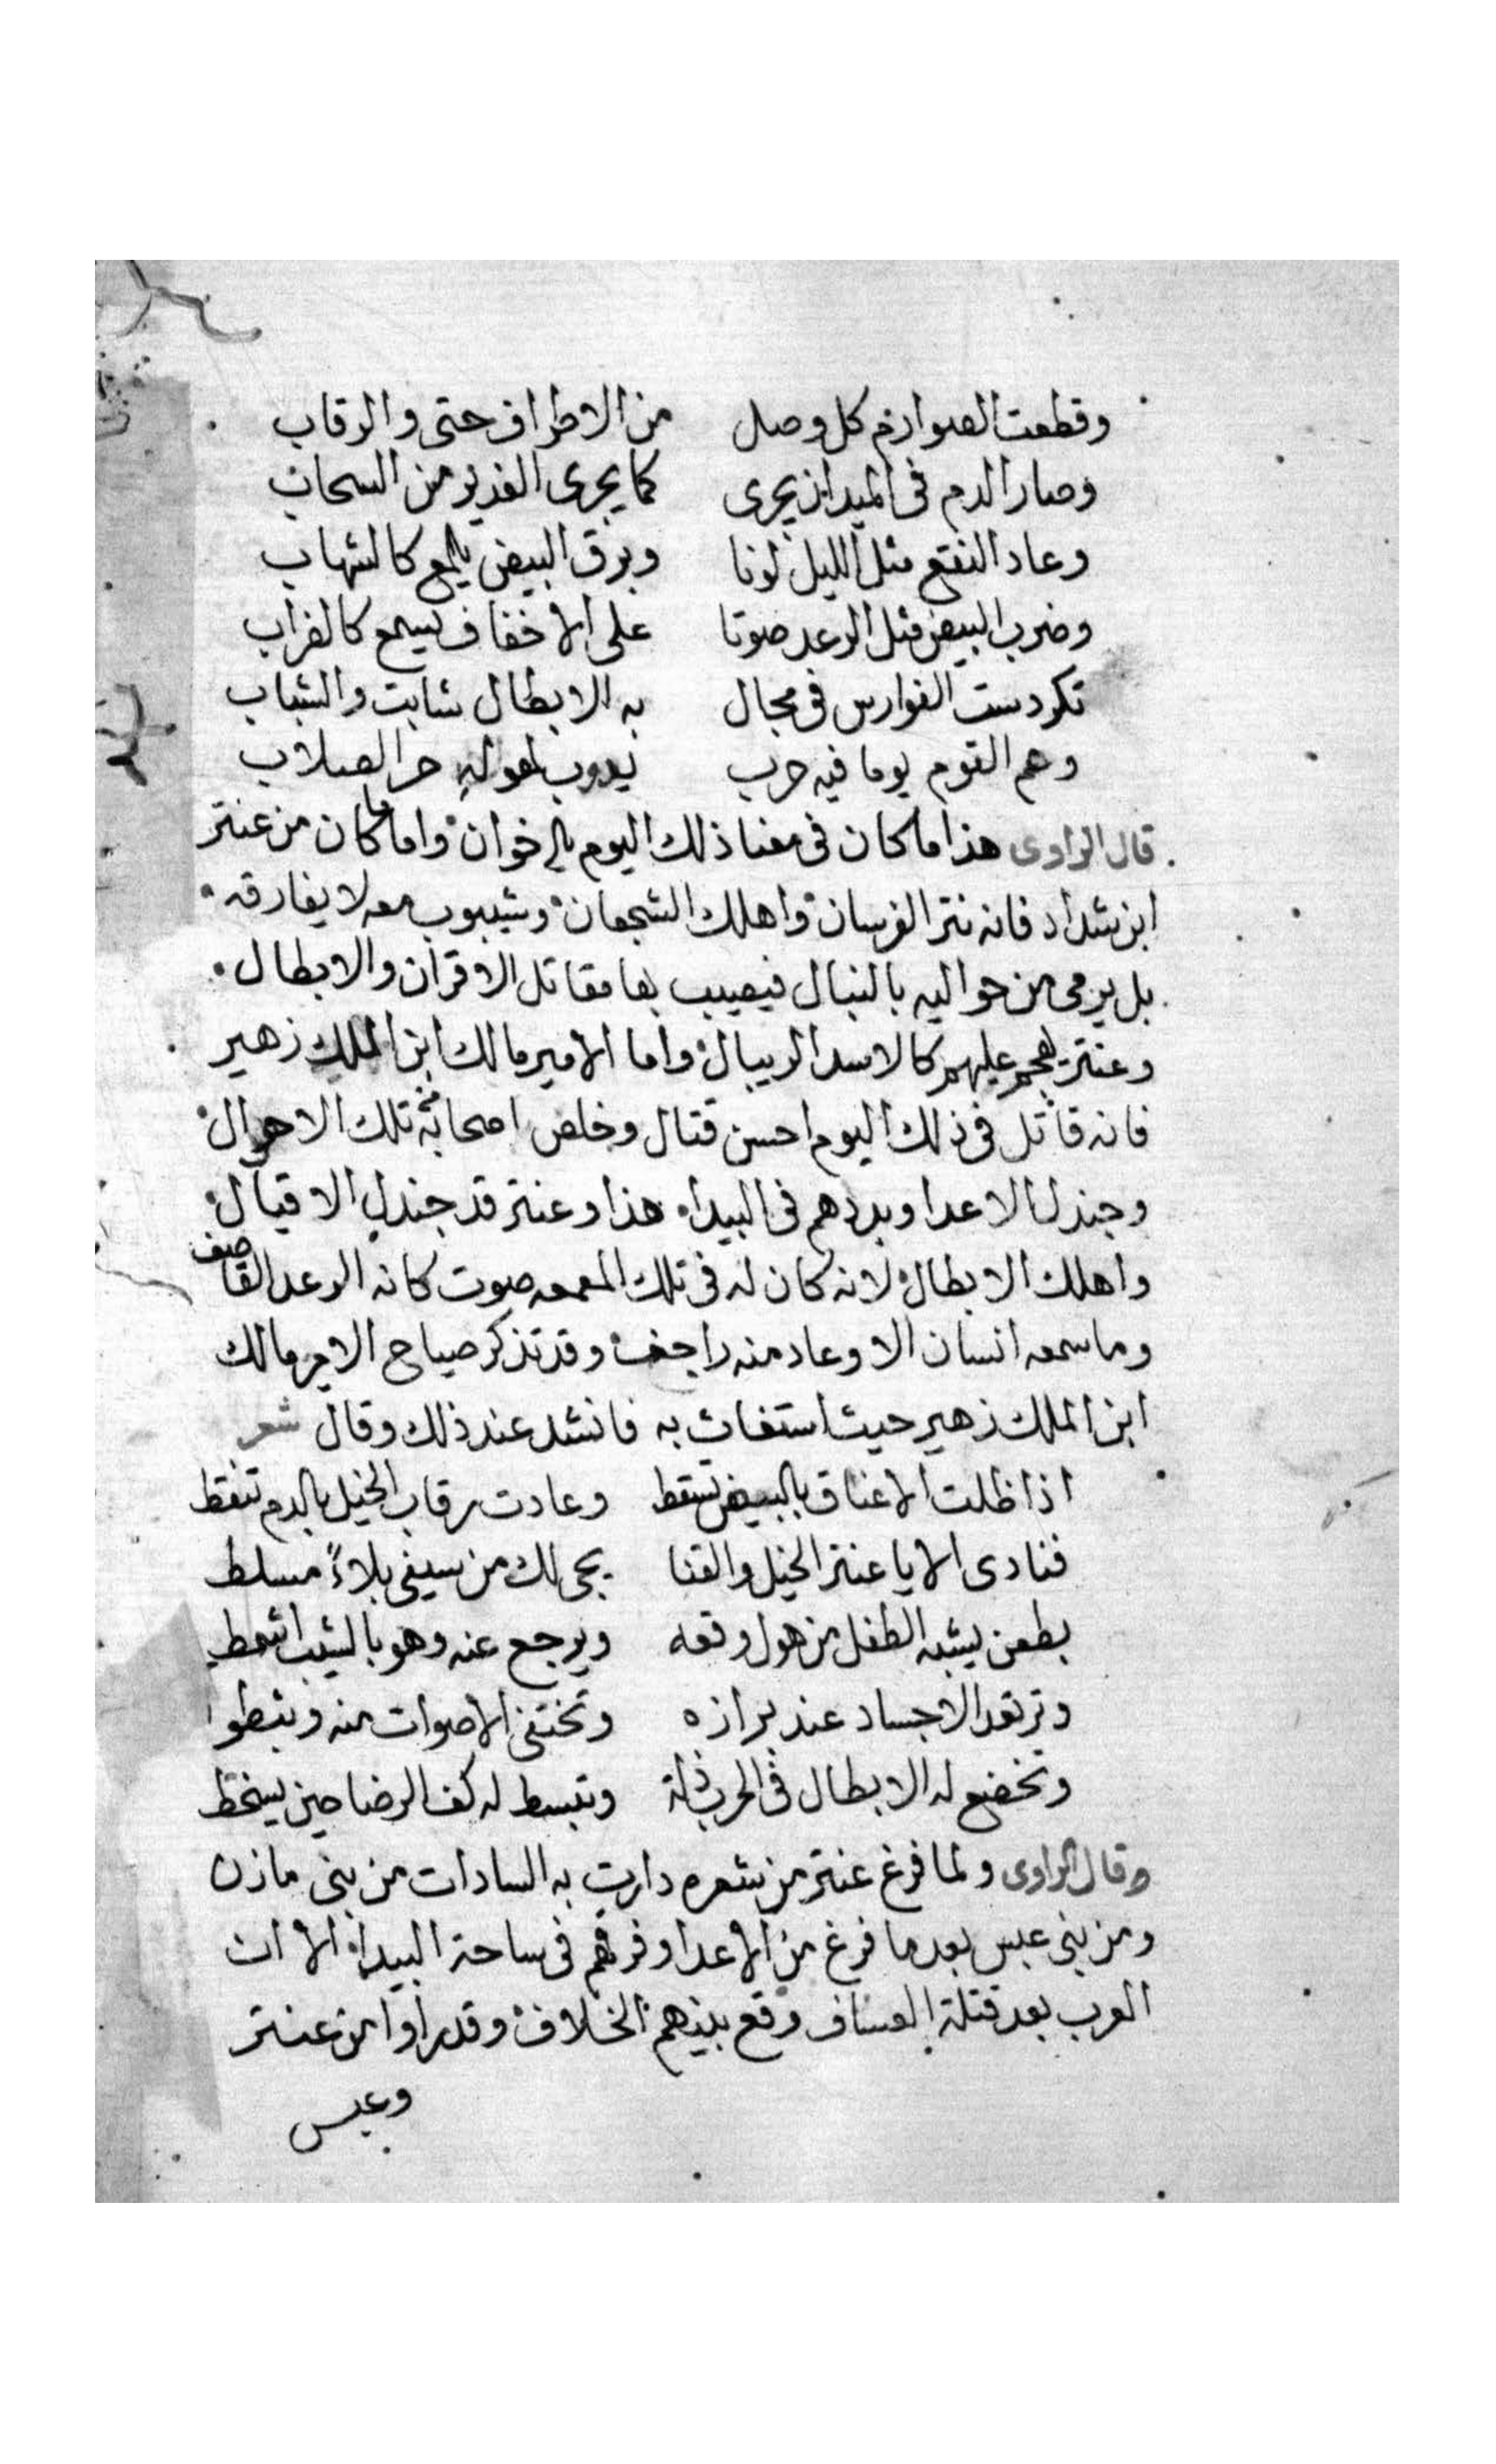 وقطعت الصوارم كل وصل من الاطراف حتى والرقاب
وصار الدم فى الميدان يجرى كما يجرى الغدير من السحاب
وعاد النقع مثل الليل لونا وبرق البيض يلمع كالشهاب
وضرب البيض مثل الرعد صوتا على الاخفاف يسمع كالغراب
تكردست الفوارس فى مجال به الابطال شابت والشباب
وهم القوم يوما فيه حرب يدوب لهوله حر الصلاب
قال الراوى هذا ما كان فى معنا ذلك اليوم يالاخوان واما ما كان من عنتر
ابن شداد فانه نتر الفرسان واهلك الشجعان وشيبوب معه لا يفارقه
بل يرمى من حواليه بالنبال فيصيب بها مقاتل الاقران والابطال
وعنتر يهجم عليهم كالاسد الريبال واما الامير مالك ابن الملك زهير
فانه قاتل فى ذلك اليوم احسن قتال وخلص اصحابه من تلك الاهوال
وجندل الاعدا وبددهم فى البيدا هذا وعنتر قد جندل الاقيال
واهلك الابطال لانه كان له فى تلك المعمعه صوت كانه الرعد القاصف
وما سمعه انسان الا وعاد منه راجف وقد تذكر صياح الامير مالك
ابن الملك زهير حيث استغاث به فانشد عند ذلك وقال شعر
اذا ظلت الاعناق بالبيض تسقط وعادت رقاب الخيل بالدم تنقط
فنادى الا يا عنتر الخيل والقنا يجى لك من سيفى بلاءً مسلط
بطعن يشبه الطفل من هول وقعه ويرجع عنه وهو بالشيب اشمط
وترتعد الاجساد عند برازه وتختفى الاصوات منه وبثبطوا
وتخضع له الابطال فى الحرب ذلة وتبسط له كف الرضا حين يسخط
وقال الراوى ولما فرغ عنتر من شعره دارت به السادات من بنى مازن
ومن بنى عبس بعد ما فرغ من الاعدا وفرقهم فى ساحة البيدا الا ان
العرب بعد قتلة العساف وقع بينهم الخلاف وقد راوا من عنتر
وعبس